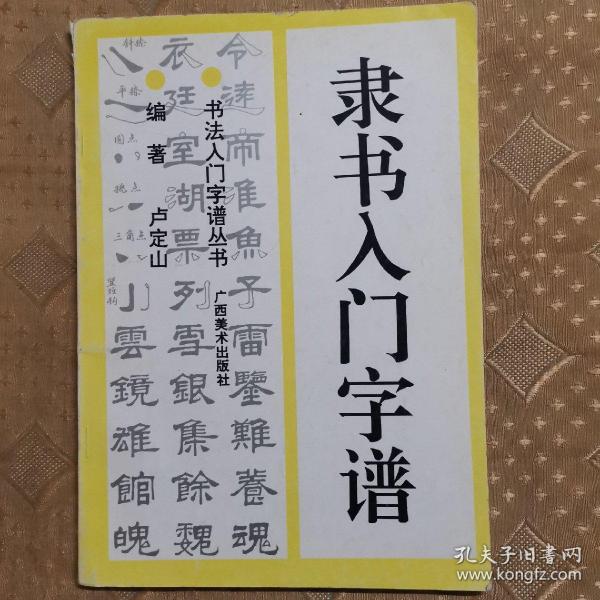 隶书入门字谱
书法入门字谱丛书
广西美术出版社
编著 卢定山
令帝淮魚子雷鑒難養魂
衣廷室湖票列雪銀集餘魏
斜捺
平捺
圆点
挑点
三角点
雲鏡雄館魄
孔夫子旧书网
www.kongfz.com